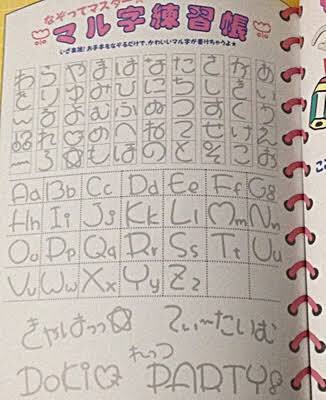 なぞってマスター
マル字練習帳
いざ実践!お手本をなぞるだけで、かわいいマル字が書けちゃうよ★
わ ら や ま は な た さ か あ
を り ゆ み ひ に ち し き い
ん る よ む ふ ぬ つ す く う
れ ♡ め へ ね て せ け え
ー ろ ☆ も ほ の と そ こ お
Aa Bb Cc Dd Ee Ff Gg
Hh Ii Jj Kk Ll Mm Nn
Oo Pp Qq Rr Ss Tt Uu
Vv Ww Xx Yy Zz
きゃはっっ☆ てぃ〜たいむ
れっつ
DOKI♡ PARTY